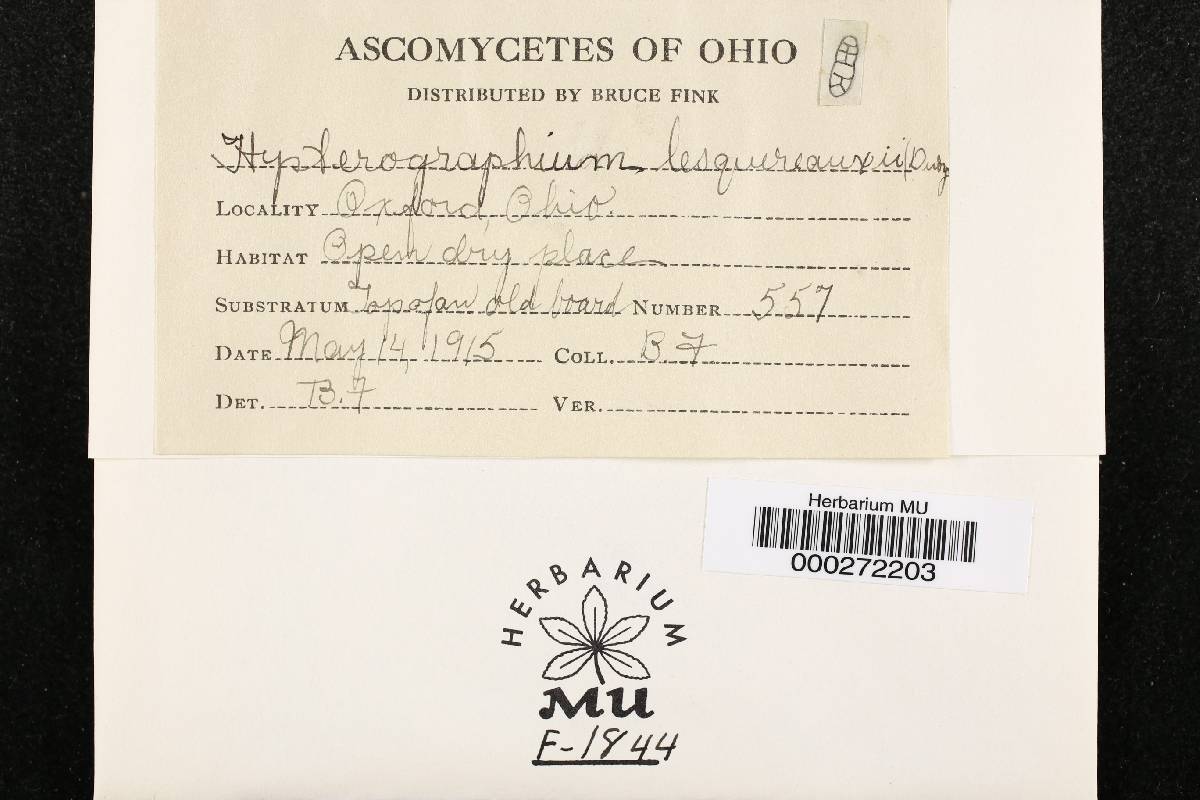 ASCOMYCETES OF OHIO
DISTRIBUTED BY BRUCE FINK
Hypterographium lesquereauxii (Duby
LOCALITY Oxford, Ohio.
HABITAT Open dry place
SUBSTRATUM Top of an old board NUMBER 557
DATE May 14, 1915 COLL. B. F
DET. B. F VER.
Herbarium MU
000272203
HERBARIUM
MU
F-1844